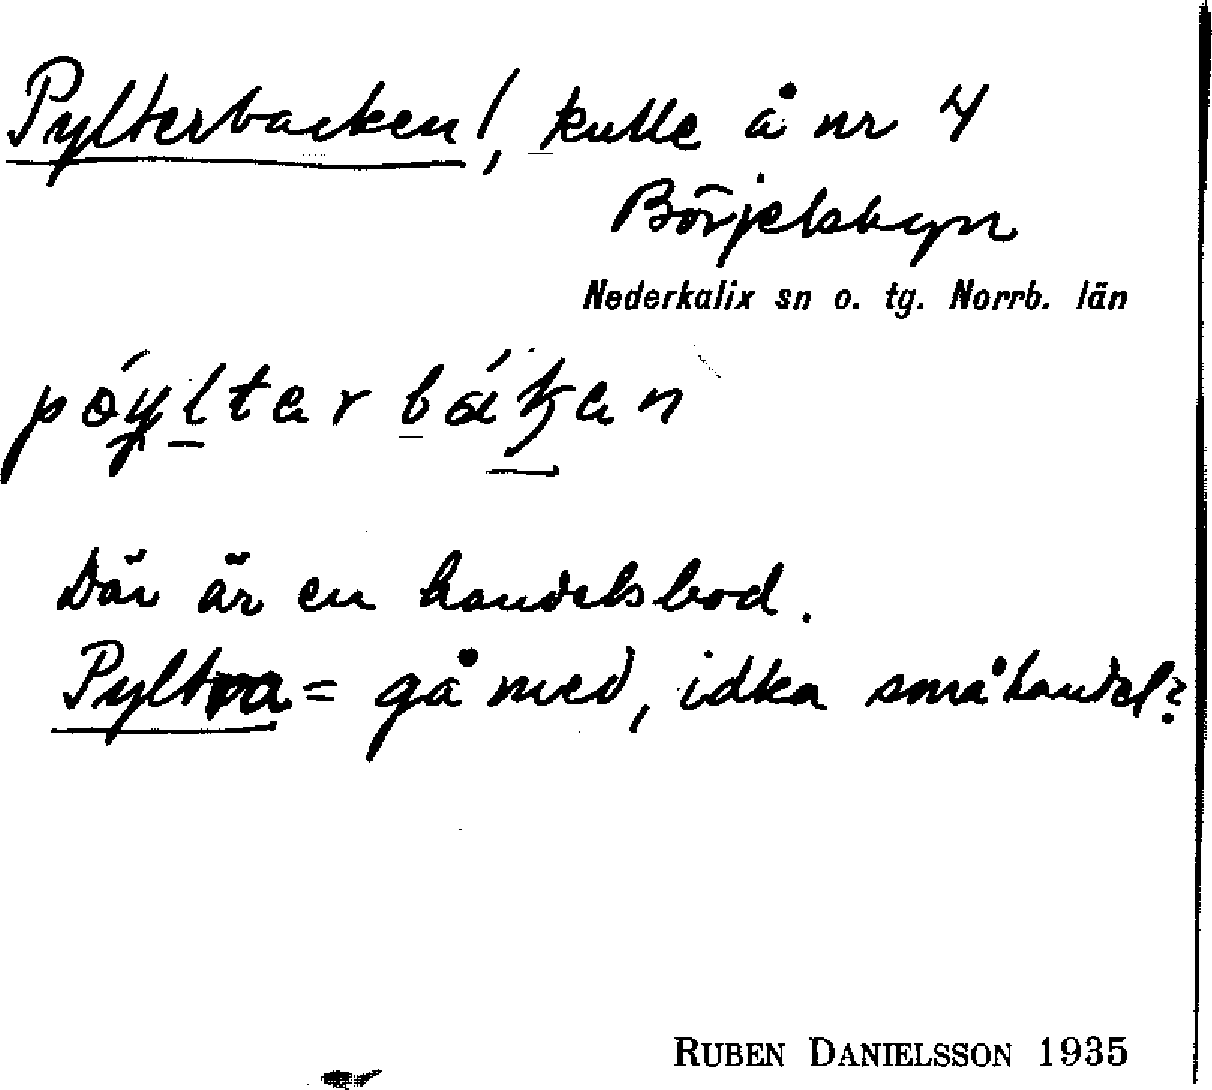 Pylterbacken!, kulle å nr 4
Börjelsbyn
Nederkalix sn o. tg. Norrb. län
póyltar bákan
Där är en handelsbod.
Pyltra = gå med, idka småhandel?
RUBEN DANIELSSON 1935